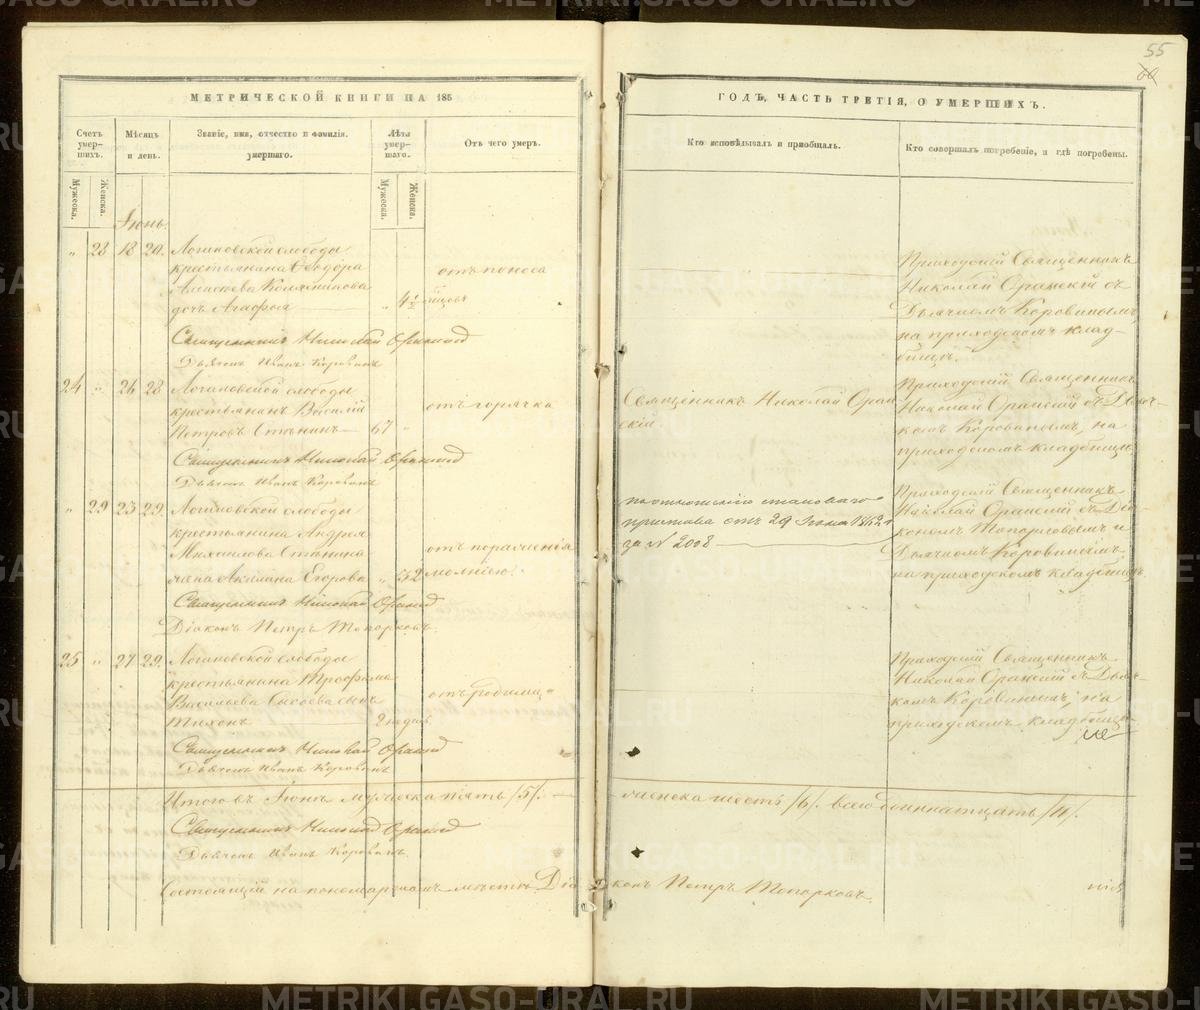 55
60
МЕТРИЧЕСКОЙ КНИГИ НА 185
ГОДЪ, ЧАСТЬ ТРЕТІЯ, О УМЕРШИХЪ.
Счетъ умер-шихъ.
Мѣсяцъ и день.
Званіе, имя, отчество и фамилія.
умершаго.
Лѣта умер-шаго.
Отъ чего умеръ.
Кто исповѣдывалъ и пріобщалъ.
Кто совершалъ погребеніе, и гдѣ погребены.
Мужеска.
Женска.
Мужеска.
Женска.
Іюнь.
„ 23 18 20. Логиновской слободы
крестьянина Ѳеодора
Алексѣева
дочь Агафья „ 4½
отъ поноса
Приходскій Священникъ
Николай Оранскій съ
Дьячкомъ Коровинымъ
на приходскомъ клад-
бищѣ.
Священникъ Николай Оранскій
Дьячокъ Иванъ Коровинъ
24 „ 26 28 Логиновской слободы
крестьянинъ Василій
Петровъ 67 „
отъ горячки
Священникъ Николай Оран-
скій.
Приходскій Священникъ
Николай Оранскій съ Дьяч-
комъ Коровинымъ, на
приходскомъ кладбищѣ
Священникъ Николай Оранскій
Дьячокъ Иванъ Коровинъ
„ 29 23 29. Логиновской слободы
крестьянина Андрея
Михаилова
жена Акилина Егорова „ 52
отъ пораженія
молніею.
по отношенію становаго
пристава отъ 29 Іюня
за № 2008
Приходскій Священникъ
Николай Оранскій съ Діа-
кономъ Топорковымъ и
Дьячкомъ Коровинымъ
на приходскомъ кладбищѣ.
Священникъ Николай Оранскій
Діаконъ Петръ Топорковъ.
25 „ 27 29. Логиновской слободы
крестьянина Трофима
Васильева сынъ
Тихонъ 2 недѣль
отъ родимца
Приходскій Священникъ
Николай Оранскій съ Дьяч-
комъ Коровинымъ, на
приходскомъ кладби-
щѣ
Священникъ Николай Оранскій
Дьячокъ Иванъ Коровинъ
Итого въ Іюнѣ мужеска пять /5/. женска шесть /6/. всего одиннатцать /11/.
Священникъ Николай Оранскій
Дьячокъ Иванъ Коровинъ.
Состоящій на пономарскомъ мѣстѣ Діаконъ Петръ Топорковъ.
METRIKI.GASO-URAL.RU